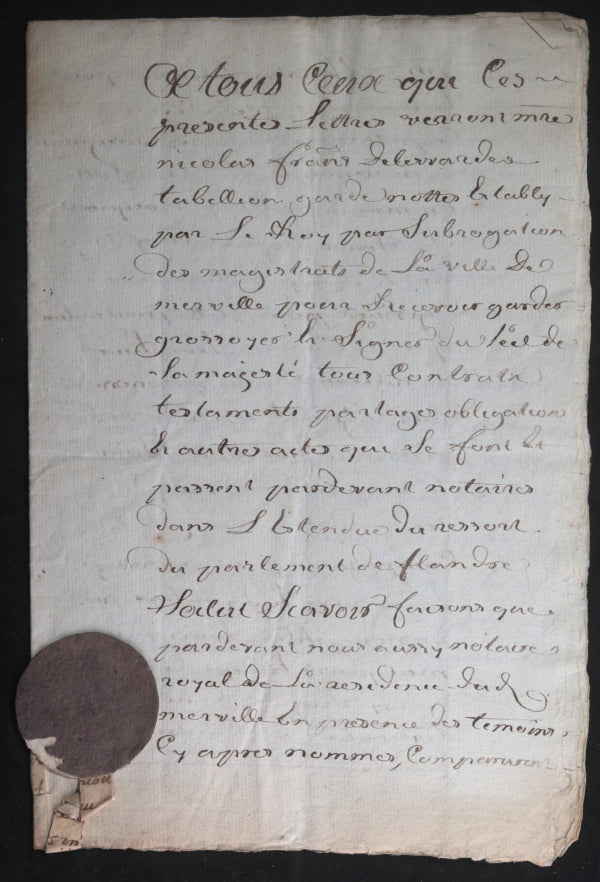 A tous Ceux qui Ces
presentes Lettres verront mtre
nicolas frans Delerardes
tabellion garde nottes Etably
par Le Roy par Subrogation
des magistrats de La ville De
merville pour Recevoir garder
grossoyer Et Signer du Scel de
Sa majesté tous Contrats
testaments partages obligations
Et autres actes qui Se font Et
passent pardevant notaires
dans L'Etendue du ressort
du parlement de flandre
Salut Scavoir faisons que
pardevant nous aussy notaire
royal de La residence dud
merville En presence des temoins
Cy apres nommes, Comparurent